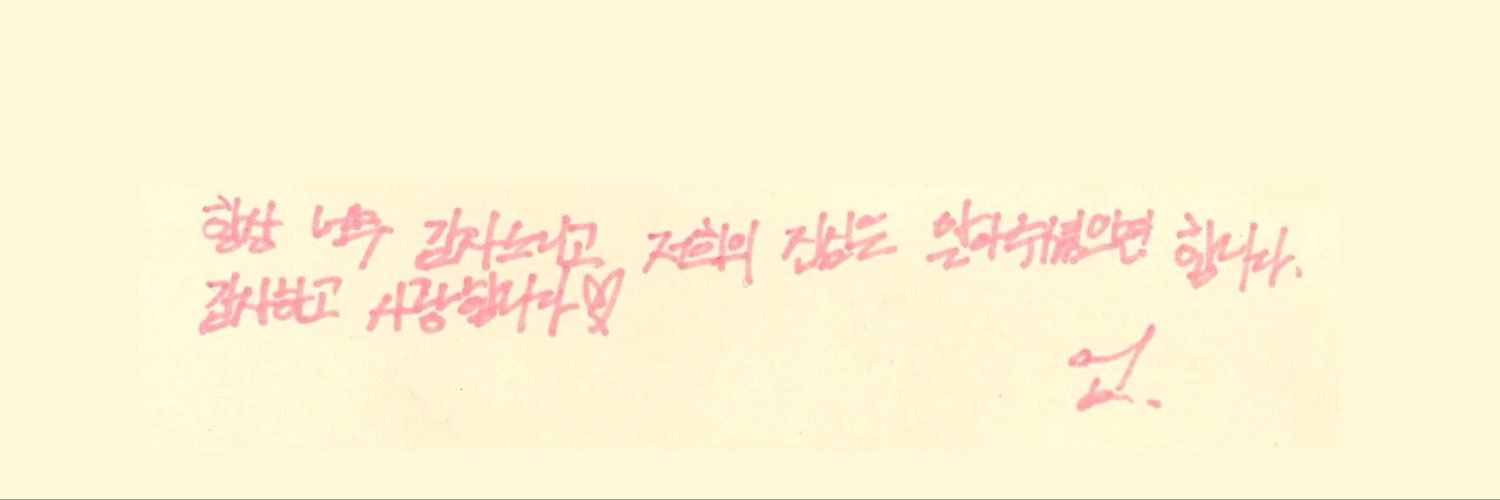 항상 너무 감사드리고 저희의 진심을 알아주셨으면 합니다.
감사하고 사랑합니다♡